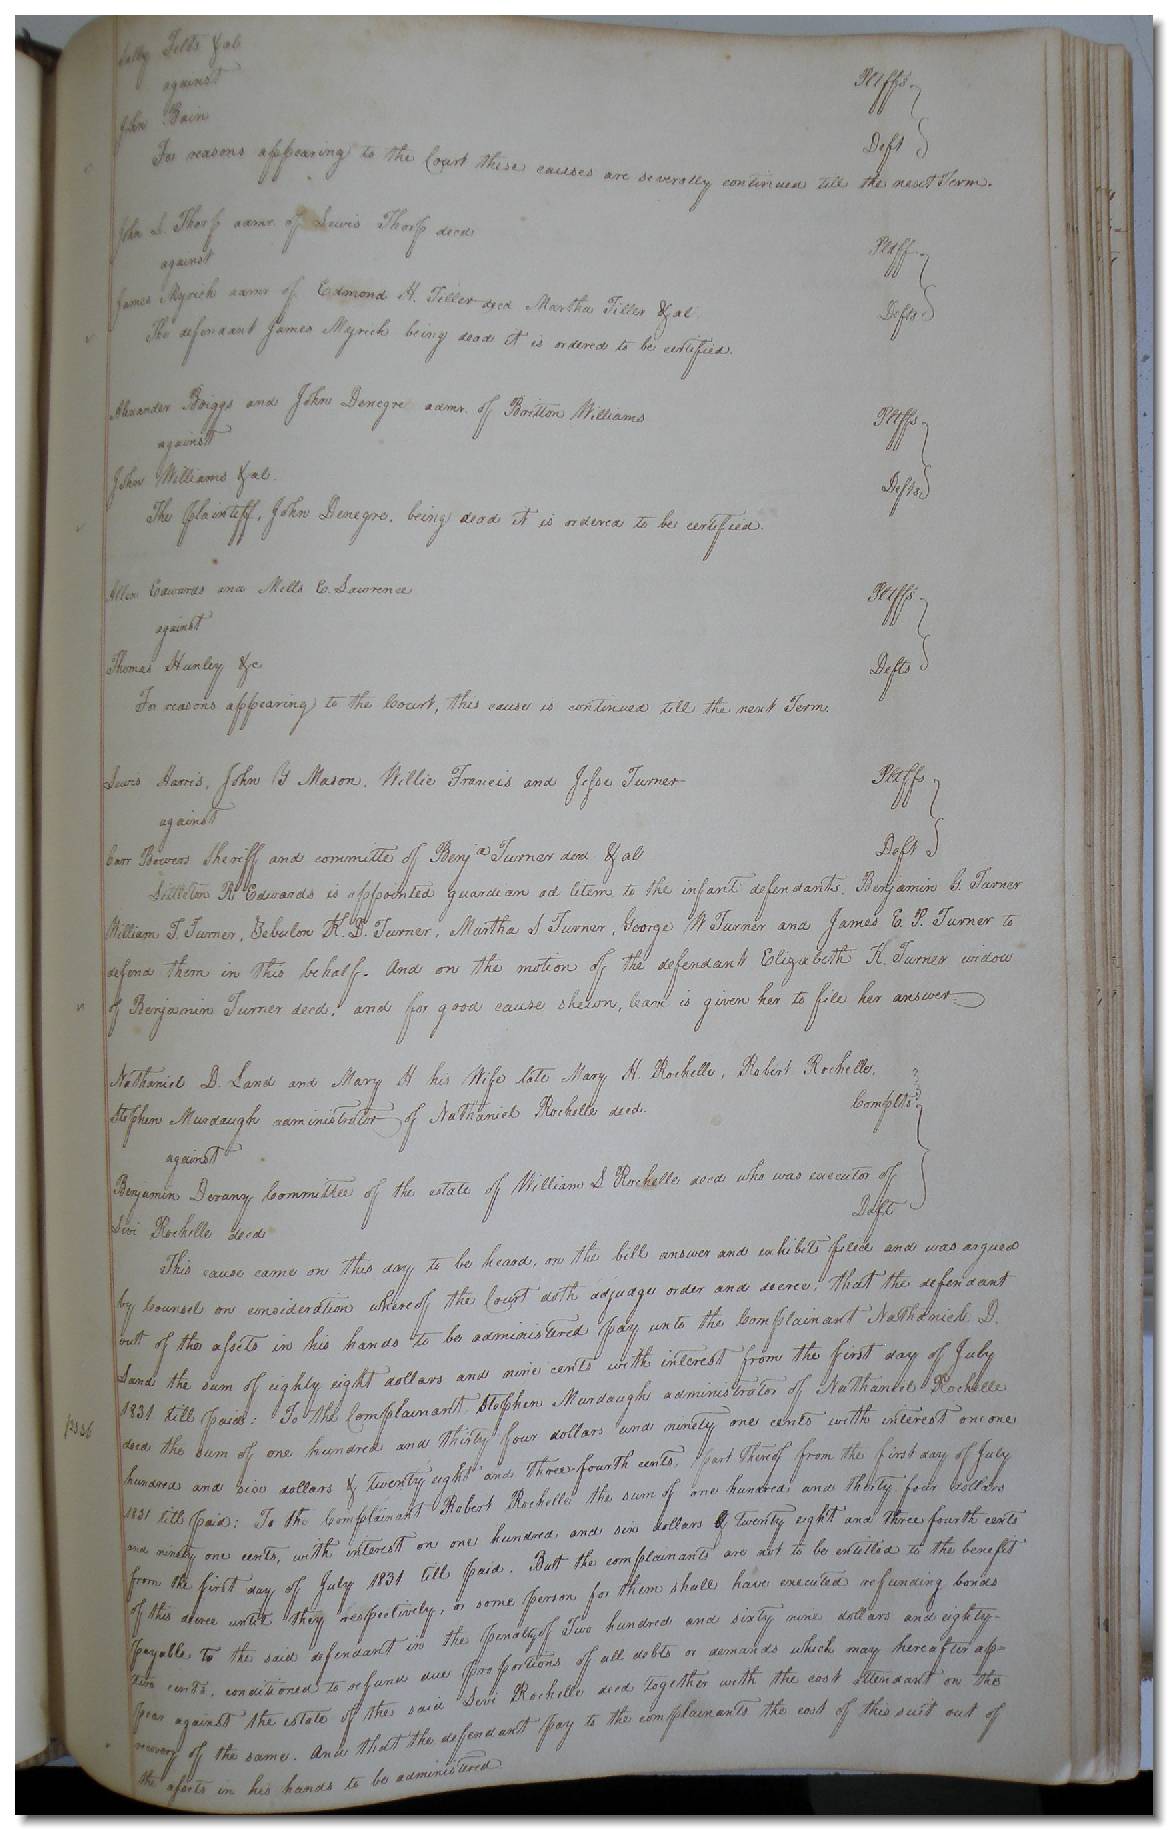 Sally Felts &al
against
Pltffs
John Bain
Deft
For reasons appearing to the Court these causes are severally continued till the next Term.
John S. Thorp admr. of Lewis Thorp decd
Pltff
against
James Myrick admr of Edmond H. Tiller decd Martha Tiller &al
Defts
The defendant James Myrick being dead it is ordered to be certified.
Alexander Boiggs and John Denegre admr. of Britton Williams
Pltffs
against
John Williams &al.
Defts
The plaintiff, John Denegre, being dead it is ordered to be certified.
Allen Edwards and Mills E. Lawrence
Pltffs
against
Thomas Hunley &c
Defts
For reasons appearing to the Court, this cause is continued till the next Term.
Lewis Harris, John Y Mason, Willie Francis and Jesse Turner
Pltff
against
Carr Bowers Sheriff and committe of Benja Turner decd &al
Deft
Littleton R. Edwards is appointed guardian ad litem to the infant defendants, Benjamin G. Turner
William T. Turner, Zebulon K. D. Turner, Martha S Turner, George W Turner and James E. P. Turner to
defend them in this behalf. And on the motion of the defendant Elizabeth K. Turner widow
of Benjamin Turner decd. and for good cause shewn, leave is given her to file her answer.
Nathaniel D. Land and Mary H his Wife late Mary H. Rochelle, Robert Rochelle,
Stephen Murdaugh administrator of Nathaniel Rochelle decd.
Complts
against
Benjamin Devany Committee of the estate of William S Rochelle decd who was executor of
Levi Rochelle decd
Deft
This cause came on this day to be heard, on the bill answer and exhibits filed and was argued
by Counsel on consideration whereof the Court doth adjudge order and decree, that the defendant
out of the assets in his hands to be administered pay unto the Complainant Nathaniel D.
Land the sum of eighty eight dollars and nine cents with interest from the first day of July
1831 till paid: To the Complainant Stephen Murdaugh administrator of Nathaniel Rochelle
decd the sum of one hundred and thirty four dollars and ninety one cents with interest on one
hundred and six dollars & twenty eight and three fourth cents, part thereof from the first day of July
1831 till paid: To the Complainant Robert Rochelle the sum of one hundred and thirty four dollars
and ninety one cents, with interest on one hundred and six dollars & twenty eight and three fourth cents
from the first day of July 1831 till paid. But the complainants are not to be entitled to the benefit
of this decree until they respectively, or some person for them shall have executed refunding bonds
payable to the said defendant in the penalty of Two hundred and sixty nine dollars and eighty-
two cents, conditioned to refund due proportions of all debts or demands which may hereafter ap=
pear against the estate of the said Levi Rochelle decd together with the cost attendant on the
recovery of the same. And that the defendant pay to the complainants the cost of this suit out of
the assets in his hands to be administered